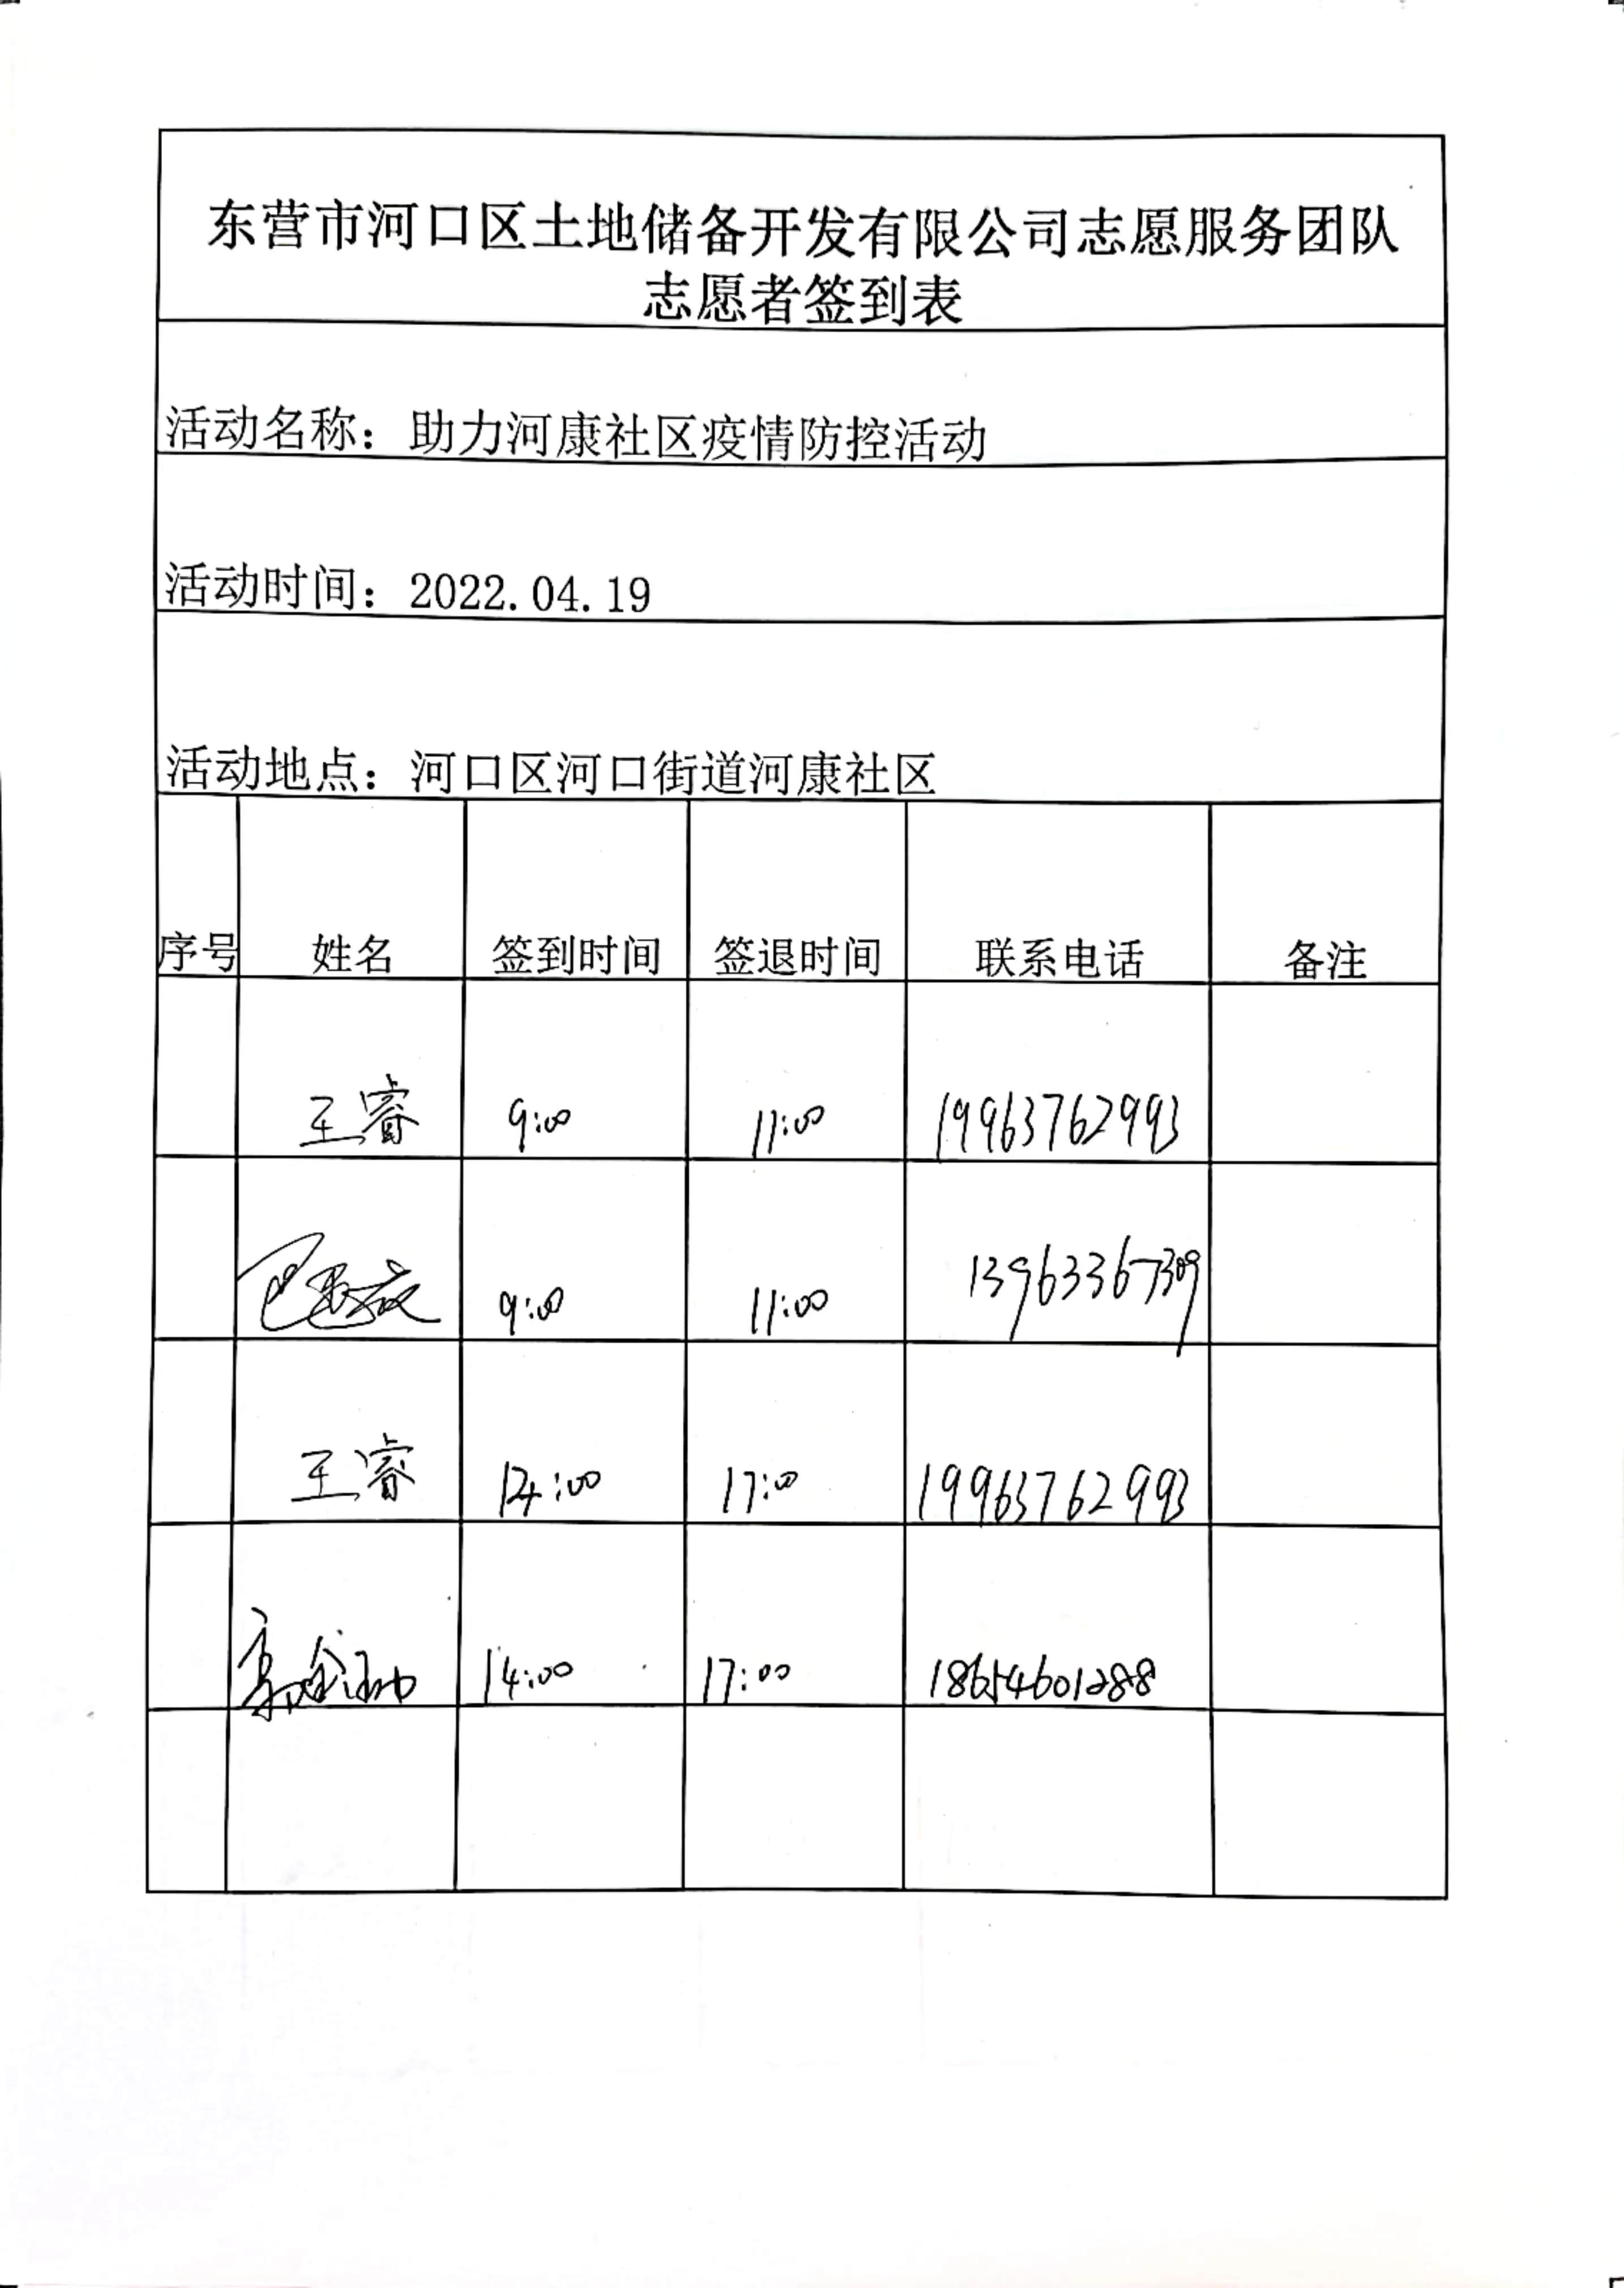 东营市河口区土地储备开发有限公司志愿服务团队
志愿者签到表
活动名称：助力河康社区疫情防控活动
活动时间：2022.04.19
活动地点：河口区河口街道河康社区
序号 姓名 签到时间 签退时间 联系电话 备注
王睿 9:00 11:00 19963762993
9:00 11:00 13963367309
王睿 14:00 17:00 19963762993
14:00 17:00 18654601288